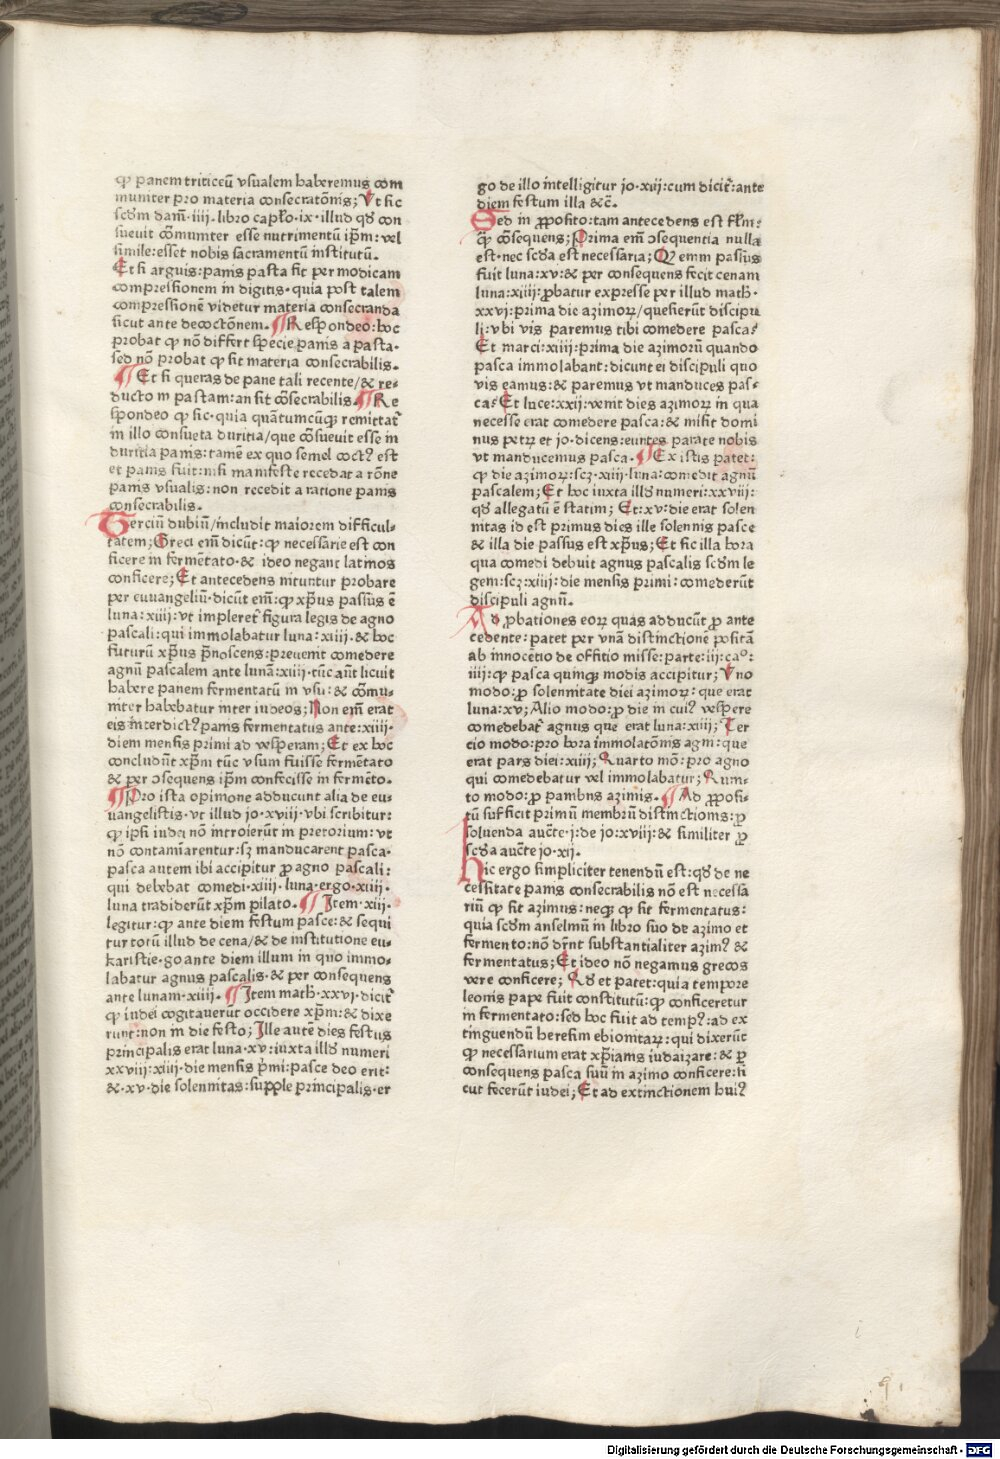 ꝙ panem triticeū vsualem haberemus com
muniter pro materia consecratōnis; Vt sic
scdm dam̄·iiii·libro capło·ix·illud qđ con
sueuit cōmuniter esse nutrimentū ipm̄: vel
simile: esset nobis sacramentū institutū.
Et si arguis: panis pasta fit per modicam
compressionem in digitis·quia post talem
compressionē videtur materia consecranda
sicut ante decoctōnem. ¶Respondeo: hoc
probat ꝙ nō differt specie panis a pasta·
sed nō probat ꝙ sit materia consecrabilis.
¶Et si queras de pane tali recente/& re-
ducto in pastam: an sit cōsecrabilis. ¶Re
spondeo ꝙ sic·quia quātumcūqꝫ remittat᷑
in illo consueta duritia/que cōsueuit esse in
duritia panis: tamē ex quo semel coctꝰ est
et panis fuit: nisi manifeste recedat a rōne
panis vsualis: non recedit a ratione panis
consecrabilis.
Terciū dubiū/includit maiorem difficul-
tatem; Greci em̄ dicūt: ꝙ necessarie est con
ficere in fermētato·& ideo negant latinos
conficere; Et antecedens nituntur probare
per euuangeliū·dicūt em̄: ꝙ xp̄us passus ē
luna: xiiii: vt impleret᷑ figura legis de agno
pascali: qui immolabatur luna: xiiii·& hoc
futurū xp̄us p̄noscens: preuenit comedere
agnū pascalem ante lunā: xiiii·tūc aūt licuit
habere panem fermentatū in vsu: & cōmu-
niter habebatur inter iudeos; Non em̄ erat
eis interdictꝰ panis fermentatus ante: xiiii·
diem mensis primi ad vesperam; Et ex hoc
concludūt xp̄m tūc vsum fuisse fermētato
& per ↄsequens ipm̄ confecisse in fermēto·
¶Pro ista opinione adducunt alia de eu-
uangelistis·vt illud jo·xviii·vbi scribitur:
ꝙ ipsi iudei nō introierūt in pretorium: vt
nō contamīarentur: sꝫ manducarent pasca·
pasca autem ibi accipitur ꝓ agno pascali:
qui debebat comedi·xiiii·luna·ergo·xiiii·
luna tradiderūt xp̄m pilato. ¶Item·xiii·
legitur: ꝙ ante diem festum pasce: & sequi
tur totū illud de cena/& de institutione eu-
karistie·go ante diem illum in quo immo-
labatur agnus pascalis·& per consequens
ante lunam·xiiii· ¶Item math·xxvi·dicit᷑
ꝙ iudei cogitauerūt occidere xp̄m: & dixe
runt: non in die festo; Ille autē dies festus
principalis erat luna·xv: iuxta illđ numeri
xxviii: xiiii·die mensis p̄mi: pasce deo erit:
&·xv·die solennitas: supple principalis·er
go de illo intelligitur jo·xiii: cum dicit᷑: ante
diem festum illa &c̄·
Sed in ꝓposito: tam antecedens est fłm:
qꝫ cōsequens; Prima em̄ ↄsequentia nulla
est·nec scđa est necessaria; Ꝙ enim passus
fuit luna: xv: & per consequens fecit cenam
luna: xiiii: ꝓbatur expresse per illud math·
xxvi: prima die azimoꝝ/quesierūt discipu
li: vbi vis paremus tibi comedere pasca?
Et marci: xiiii: prima die azimorū quando
pasca immolabant: dicunt ei discipuli quo
vis eamus: & paremus vt manduces pas-
ca? Et luce: xxii: venit dies azimoꝝ in qua
necesse erat comedere pasca: & misit domi
nus petꝝ et jo·dicens: euntes parate nobis
vt manducemus pasca. ¶Ex istis patet:
ꝙ die azimoꝝ: scꝫ·xiiii·luna: comedit agnū
pascalem; Et hoc iuxta illđ numeri: xxviii:
qđ allegatū ē statim; Et: xv: die erat solen
nitas id est primus dies ille solennis pasce
& illa die passus est xp̄us; Et sic illa hora
qua comedi debuit agnus pascalis scdm le
gem: scꝫ: xiiii: die mensis primi: comederūt
discipuli agnū.
Ad ꝓbationes eoꝝ quas adducūt ꝓ ante
cedente: patet per vnā distinctionē positā
ab innocētio de offitio misse: parte: iii: caº:
iiii: ꝙ pasca quinqꝫ modis accipitur; Vno
modo: ꝓ solennitate diei azimoꝝ: que erat
luna: xv; Alio modo: ꝓ die in cuiꝰ vespere
comedebat᷑ agnus que erat luna: xiiii; Ter
cio modo: pro hora immolatōnis agni: que
erat pars diei: xiiii; Quarto mō: pro agno
qui comedebatur vel immolabatur; Quin-
to modo: ꝓ panibus azimis. ¶Ad ꝓposi-
tū sufficit primū membrū distinctionis: ꝓ
soluenda auctē: j: de jo: xviii: & similiter ꝓ
scđa auctē jo·xii·
Hic ergo simpliciter tenendū est: qđ de ne
cessitate panis consecrabilis nō est necessa
riū ꝙ sit azimus: neqꝫ ꝙ sit fermentatus:
quia scdm anselmū in libro suo de azimo et
fermento: nō dr̄nt substantialiter azimꝰ &
fermentatus; Et ideo nō negamus grecos
vere conficere; Qđ et patet: quia tempore
leonis pape fuit constitutū: ꝙ conficeretur
in fermentato: sed hoc fuit ad tempꝰ: ad ex
tinguendū heresim ebionitaꝝ: qui dixerūt
ꝙ necessarium erat xp̄ianis iudaizare: & ꝑ
consequens pasca suū in azimo conficere: si
cut fecerūt iudei; Et ad extinctionem huiꝰ
Digitalisierung gefördert durch die Deutsche Forschungsgemeinschaft - DFG